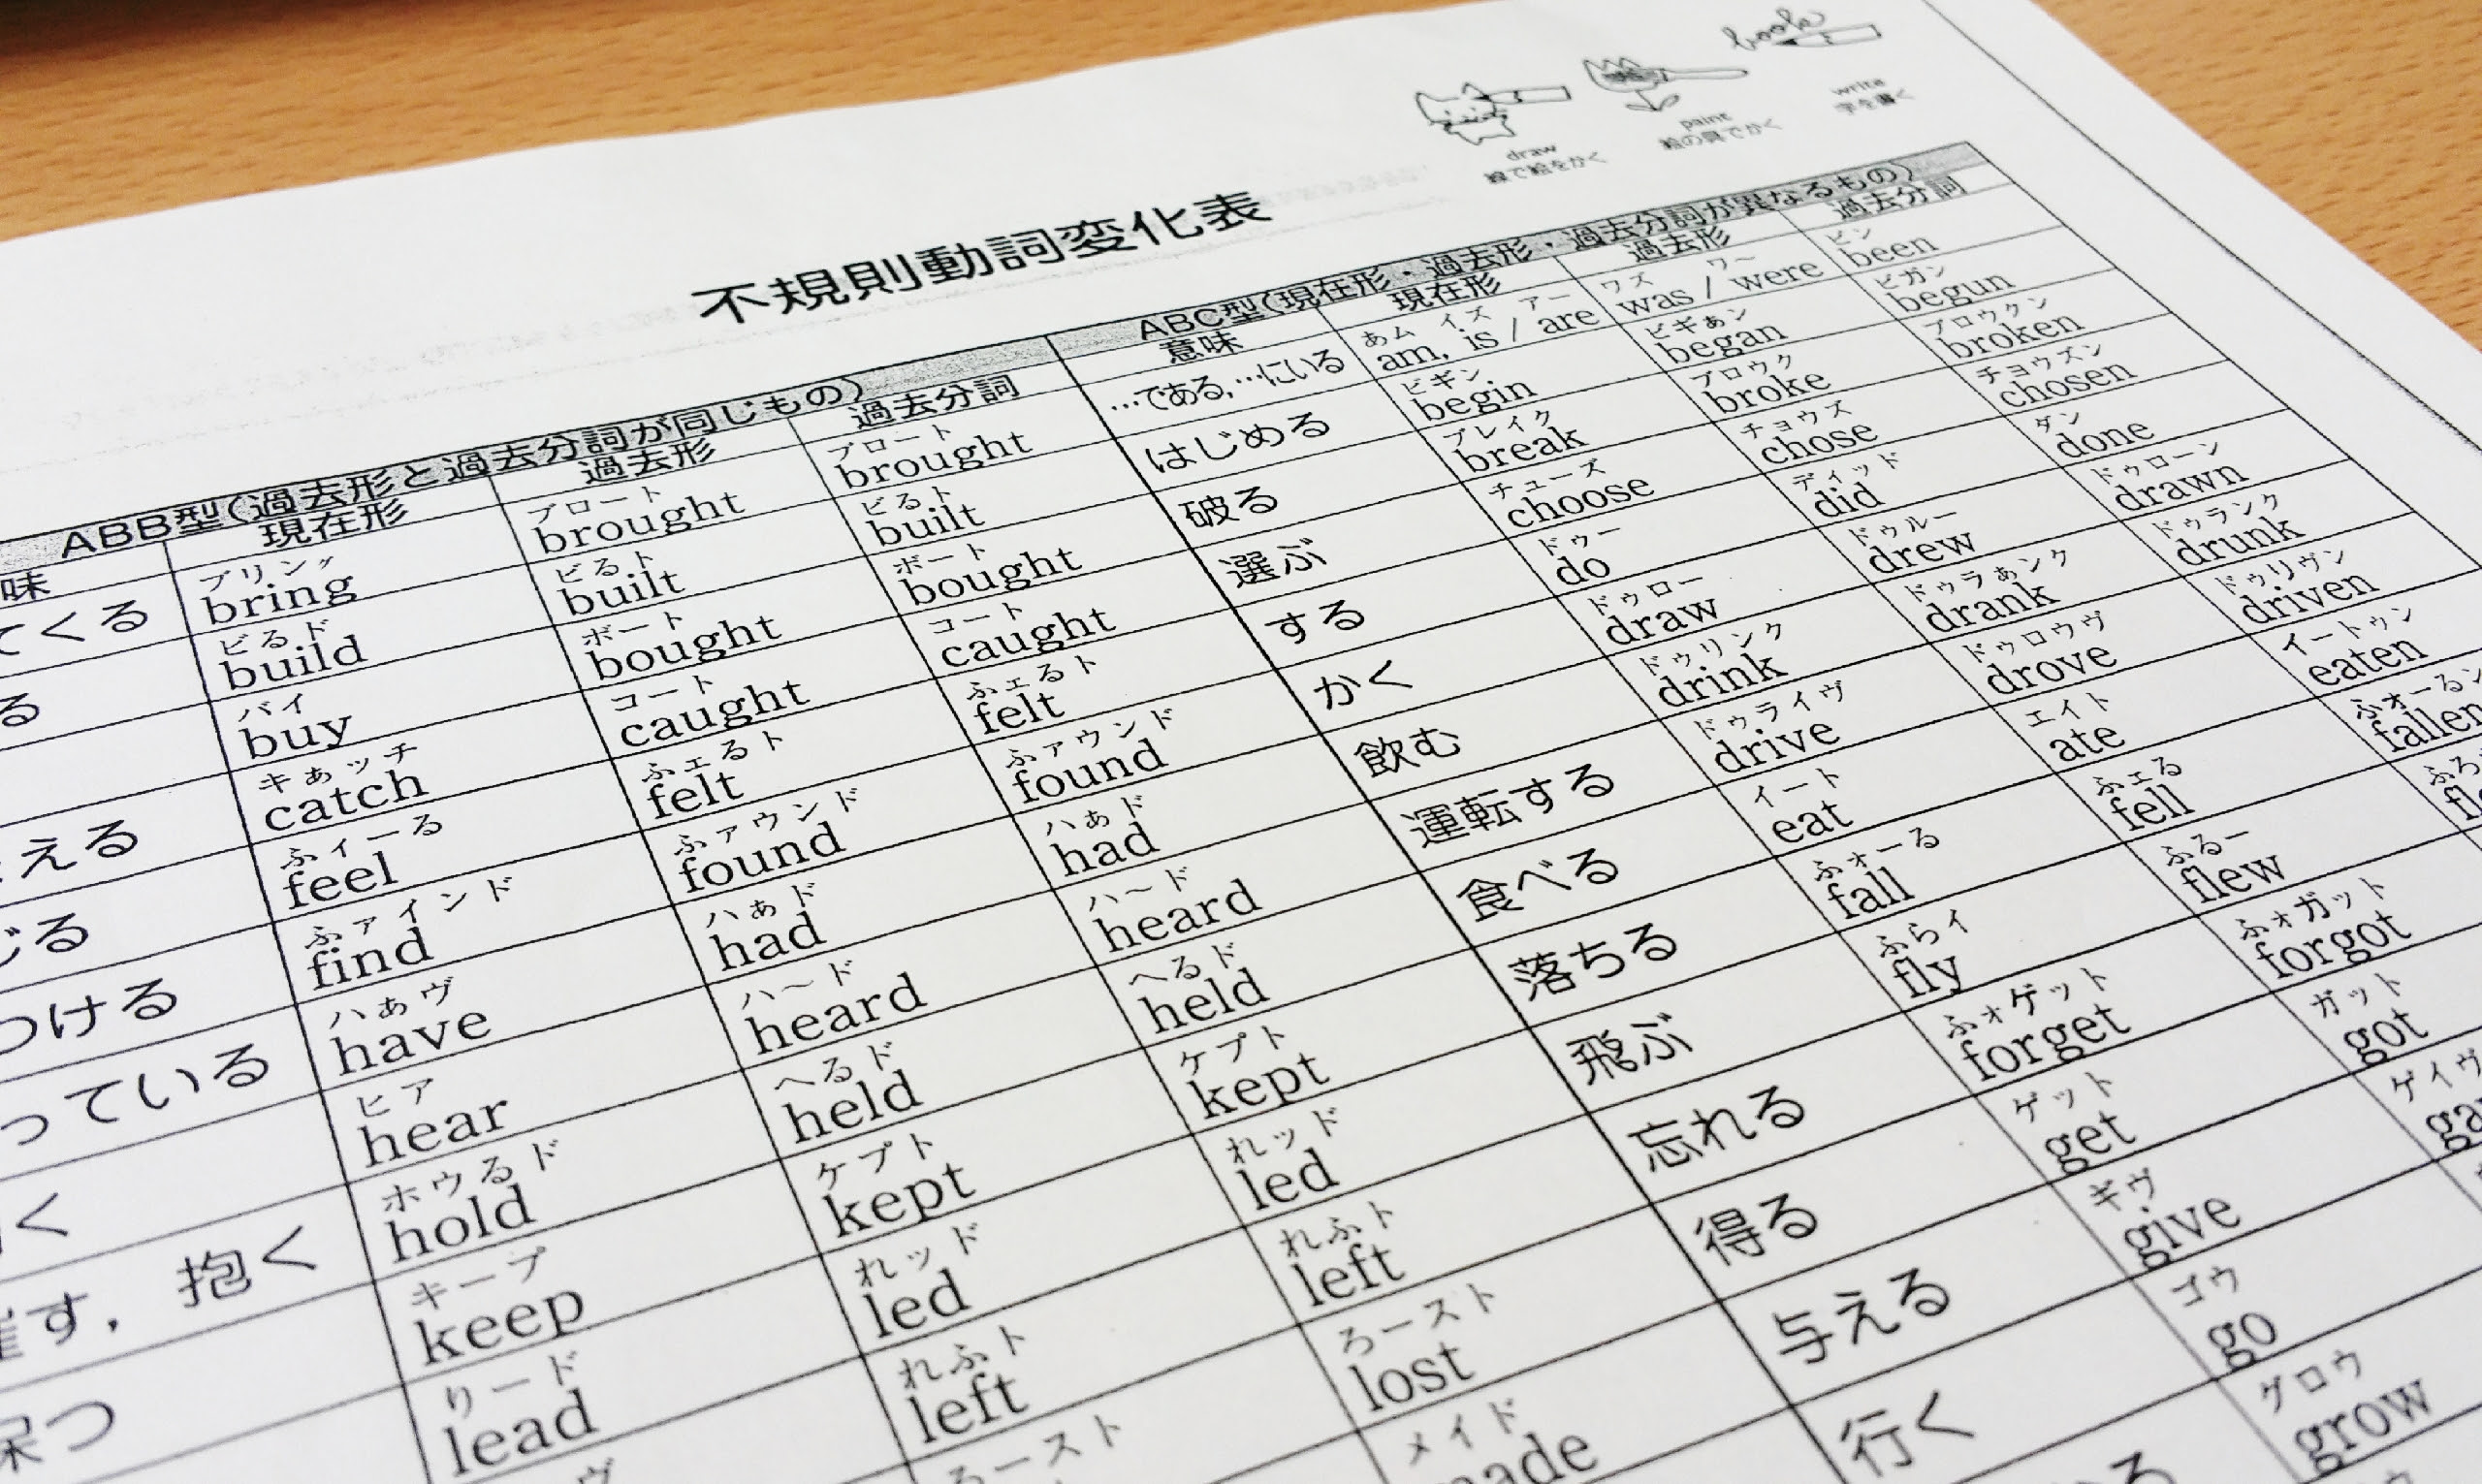 draw
線で絵をかく
paint
絵の具でかく
write
字を書く
不規則動詞変化表
ABB型(過去形と過去分詞が同じもの)
現在形 過去形 過去分詞
てくる ブリング bring ブロート brought ブロート brought
る ビるド build ビるト built ビるト built
バイ buy ボート bought ボート bought
える キぁッチ catch コート caught コート caught
じる ふィーる feel ふェるト felt ふェるト felt
つける ふァインド find ふァウンド found ふァウンド found
っている ハぁヴ have ハぁド had ハぁド had
く ヒア hear ハ〜ド heard ハ〜ド heard
す，抱く ホウるド hold へるド held へるド held
保つ キープ keep ケプト kept ケプト kept
りード lead れッド led れッド led
れふト left れふト left
ろースト ろースト lost
メイド
ABC型(現在形・過去形・過去分詞が異なるもの)
意味 現在形 過去形 過去分詞
…である，…にいる あム イズ アー am, is / are ワズ ワ〜 was / were ビン been
はじめる ビギン begin ビギぁン began ビガン begun
破る ブレイク break ブロウク broke ブロウクン broken
選ぶ チューズ choose チョウズ chose チョウズン chosen
する ドゥー do ディッド did ダン done
かく ドゥロー draw ドゥルー drew ドゥローン drawn
飲む ドゥリンク drink ドゥラぁンク drank ドゥランク drunk
運転する ドゥライヴ drive ドゥロウヴ drove ドゥリヴン driven
食べる イート eat エイト ate イートゥン eaten
落ちる ふォーる fall ふェる fell ふォーるン fallen
飛ぶ ふらイ fly ふるー flew
忘れる ふォゲット forget ふォガット forgot
得る ゲット get ガット got
与える ギヴ give ゲイヴ
行く ゴウ go
グロウ grow